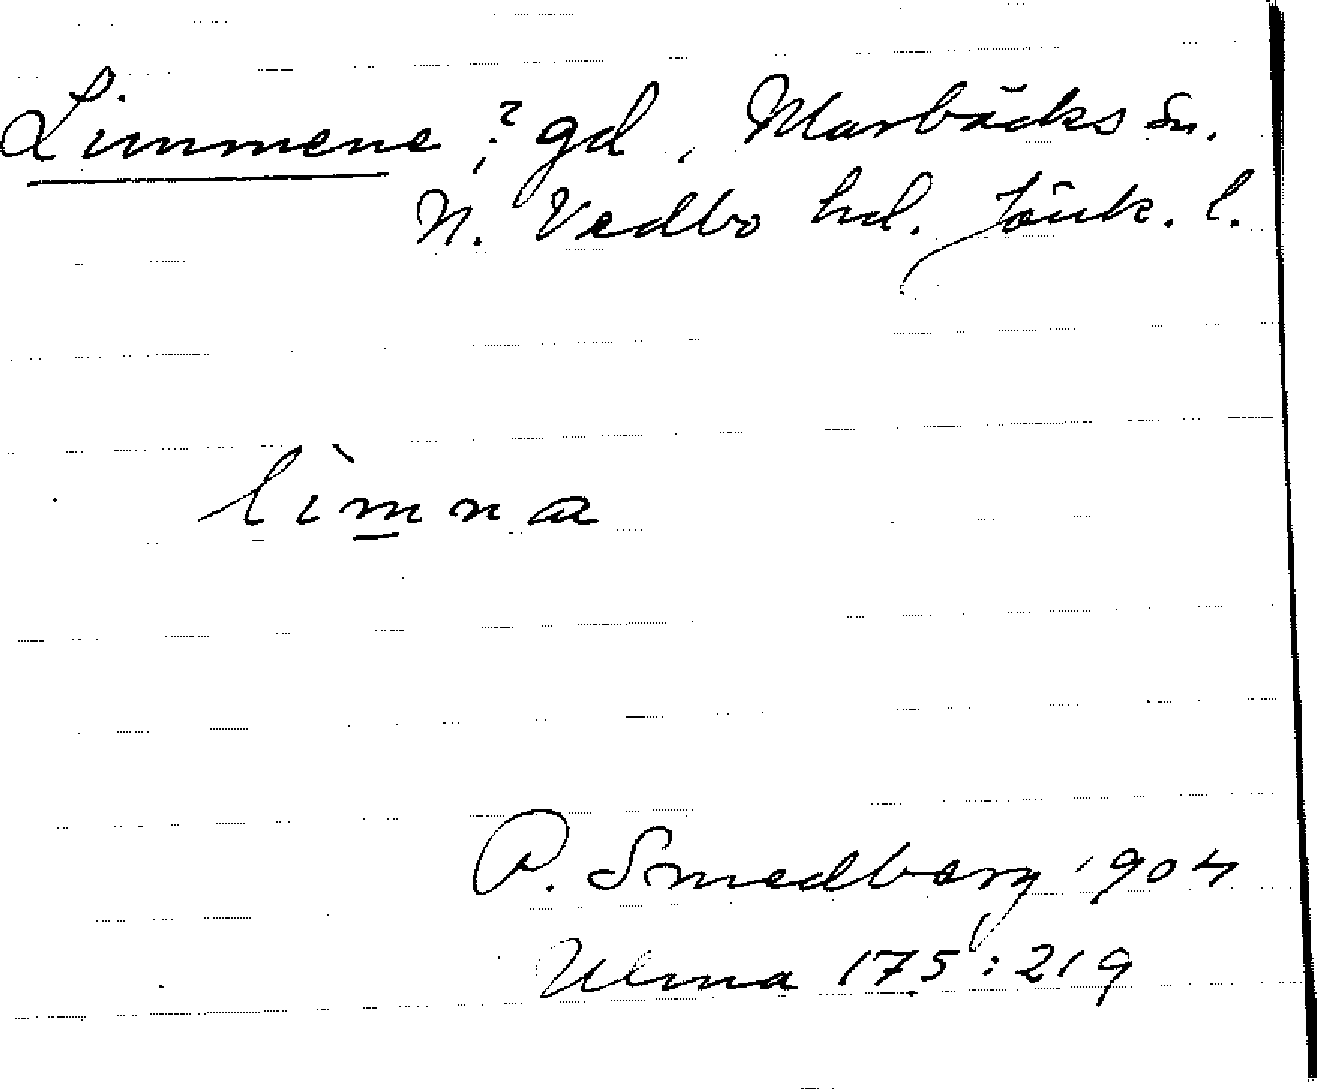 Limmene, ? gd, Marbäcks sn.
N. Vedbo hd. Jönk. l.
lìm̲na
P. Smedberg 1904
Ulma 175:219